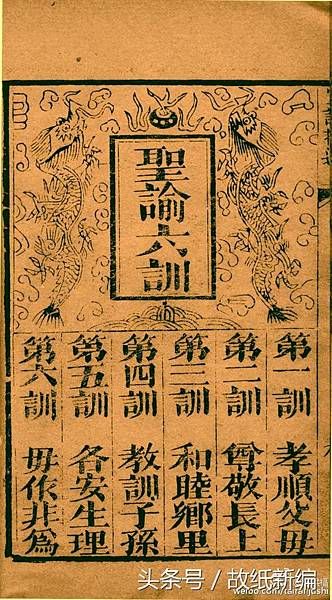 聖諭六訓
第一訓 孝順父母
第二訓 尊敬長上
第三訓 和睦鄉里
第四訓 教訓子孫
第五訓 各安生理
第六訓 毋作非為
头条号 / 故纸新编
weibo.com/tairanjushi